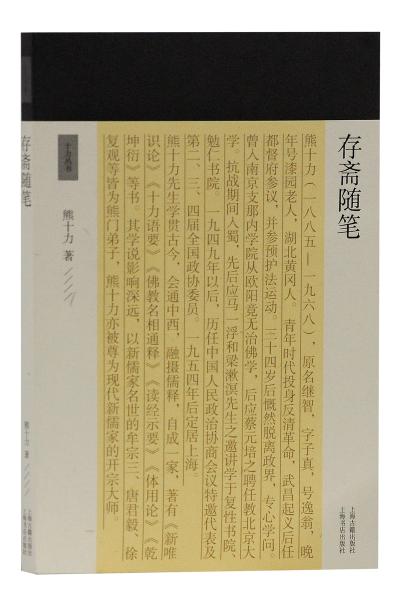 存斋随笔
熊十力（一八八五—一九六八），原名继智，字子真，号逸翁，晚
年号漆园老人，湖北黄冈人。青年时代投身反清革命，武昌起义后任
都督府参议，并参预护法运动。三十四岁后慨然脱离政界，专心学问。
曾入南京支那内学院从欧阳竟无治佛学，后应蔡元培之聘任教北京大
学。抗战期间入蜀，先后应马一浮和梁漱溟先生之邀讲学于复性书院、
勉仁书院。一九四九年以后，历任中国人民政治协商会议特邀代表及
第二、三、四届全国政协委员。一九五四年后定居上海。
熊十力先生学贯古今，会通中西，融摄儒释，自成一家，著有《新唯
识论》《十力语要》《佛教名相通释》《读经示要》《体用论》《乾
坤衍》等书，其学说影响深远，以新儒家名世的牟宗三、唐君毅、徐
复观等皆为熊门弟子，熊十力亦被尊为现代新儒家的开宗大师。
上海古籍出版社
上海书店出版社
十力丛书
熊十力 著
存斋随笔
熊十力 著
上海古籍出版社
上海书店出版社